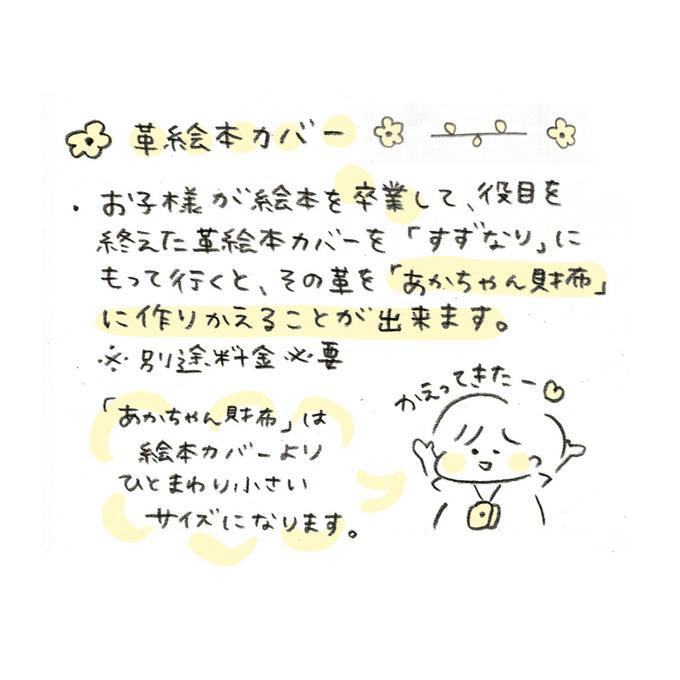 革絵本カバー
・お子様が絵本を卒業して、役目を
終えた革絵本カバーを「すずなり」に
もって行くと、その革を「あかちゃん財布」
に作りかえることが出来ます。
※別途料金必要
かえってきたー
「あかちゃん財布」は
絵本カバーより
ひとまわり小さい
サイズになります。